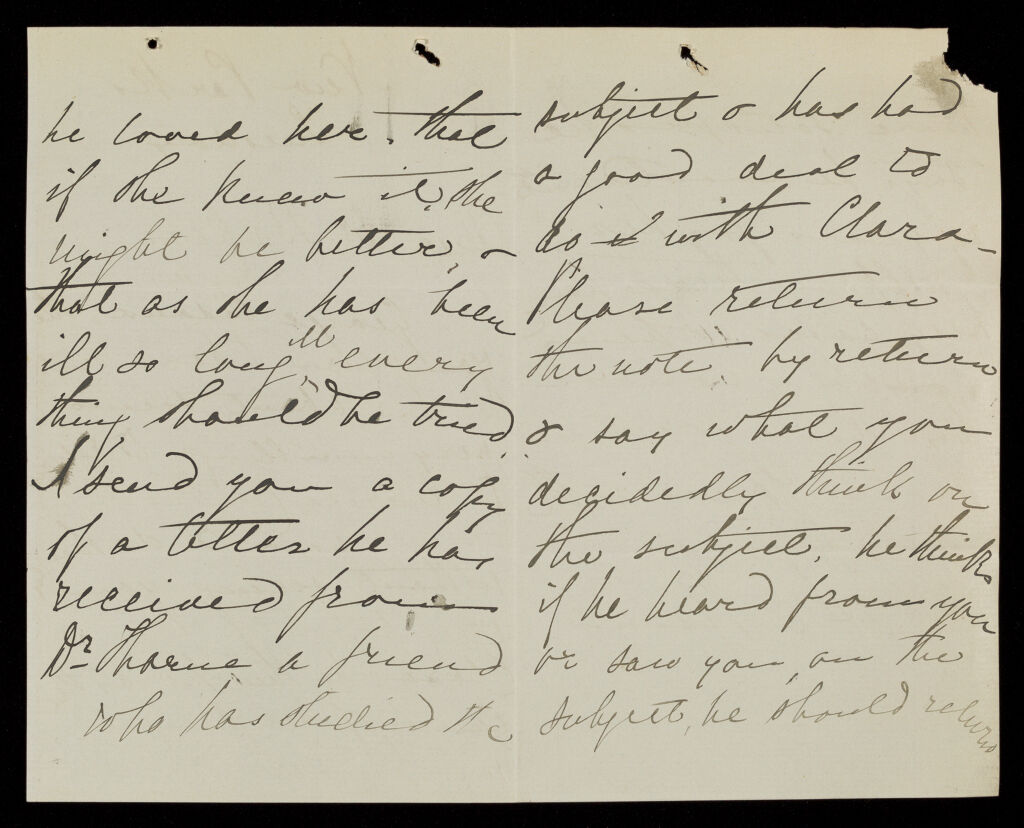 he loved her. that
if she knew it, she
might be better, &
that as she has been
ill so long, every
thing should be tried.
I send you a copy
of a letter he has
received from
Dr. Thorne a friend
who has studied the
subject & has had
a good deal to
do with Clara -
Please return
the note by return
& say what you
decidedly think on
the subject. he thinks
if he heard from you
or saw you, on the
subject, he should return